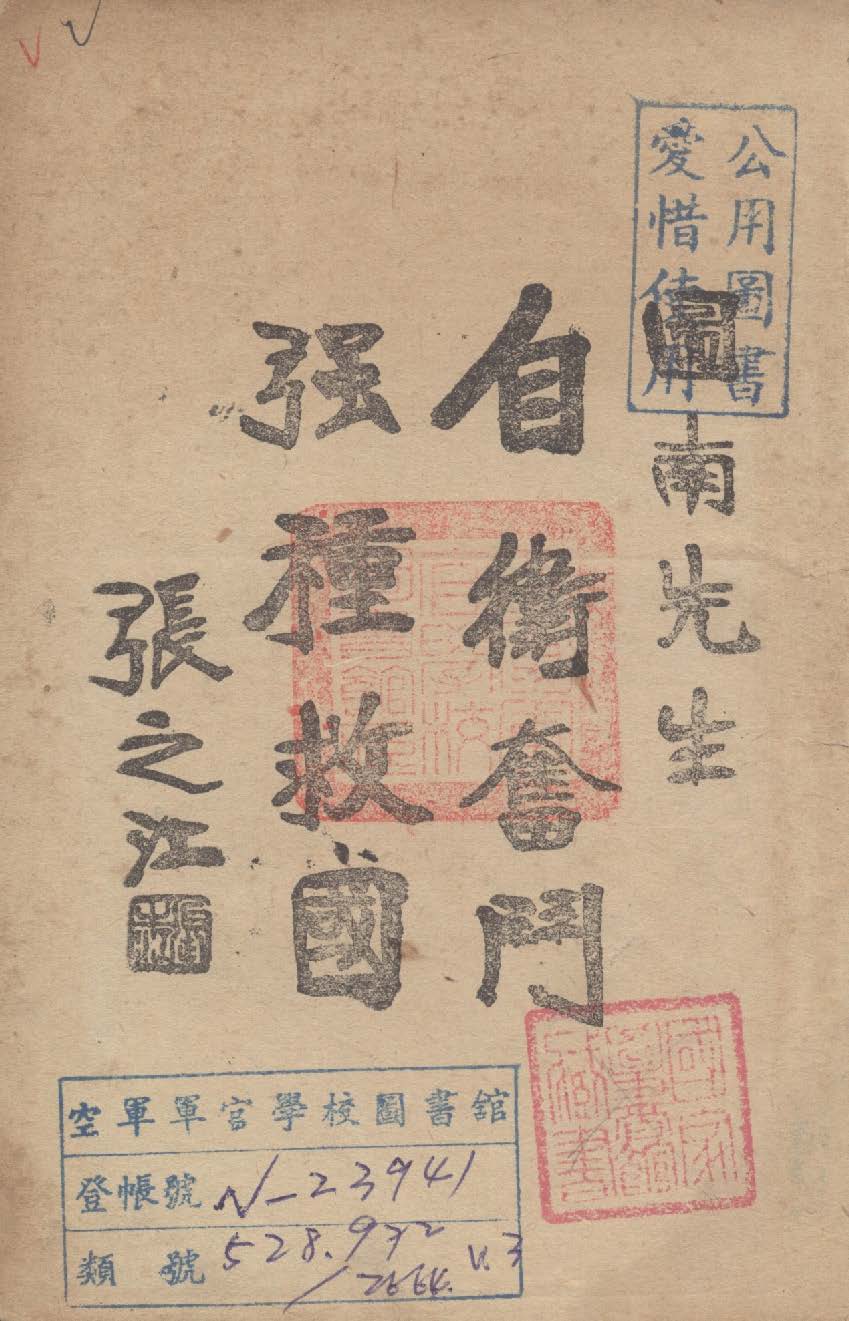 公用圖書
愛惜使用
圖南先生
自衛奮鬥
强種救國
張之江
國家圖書館藏書
空軍軍官學校圖書館
登帳號 N-23941
類號 528.972
v.3